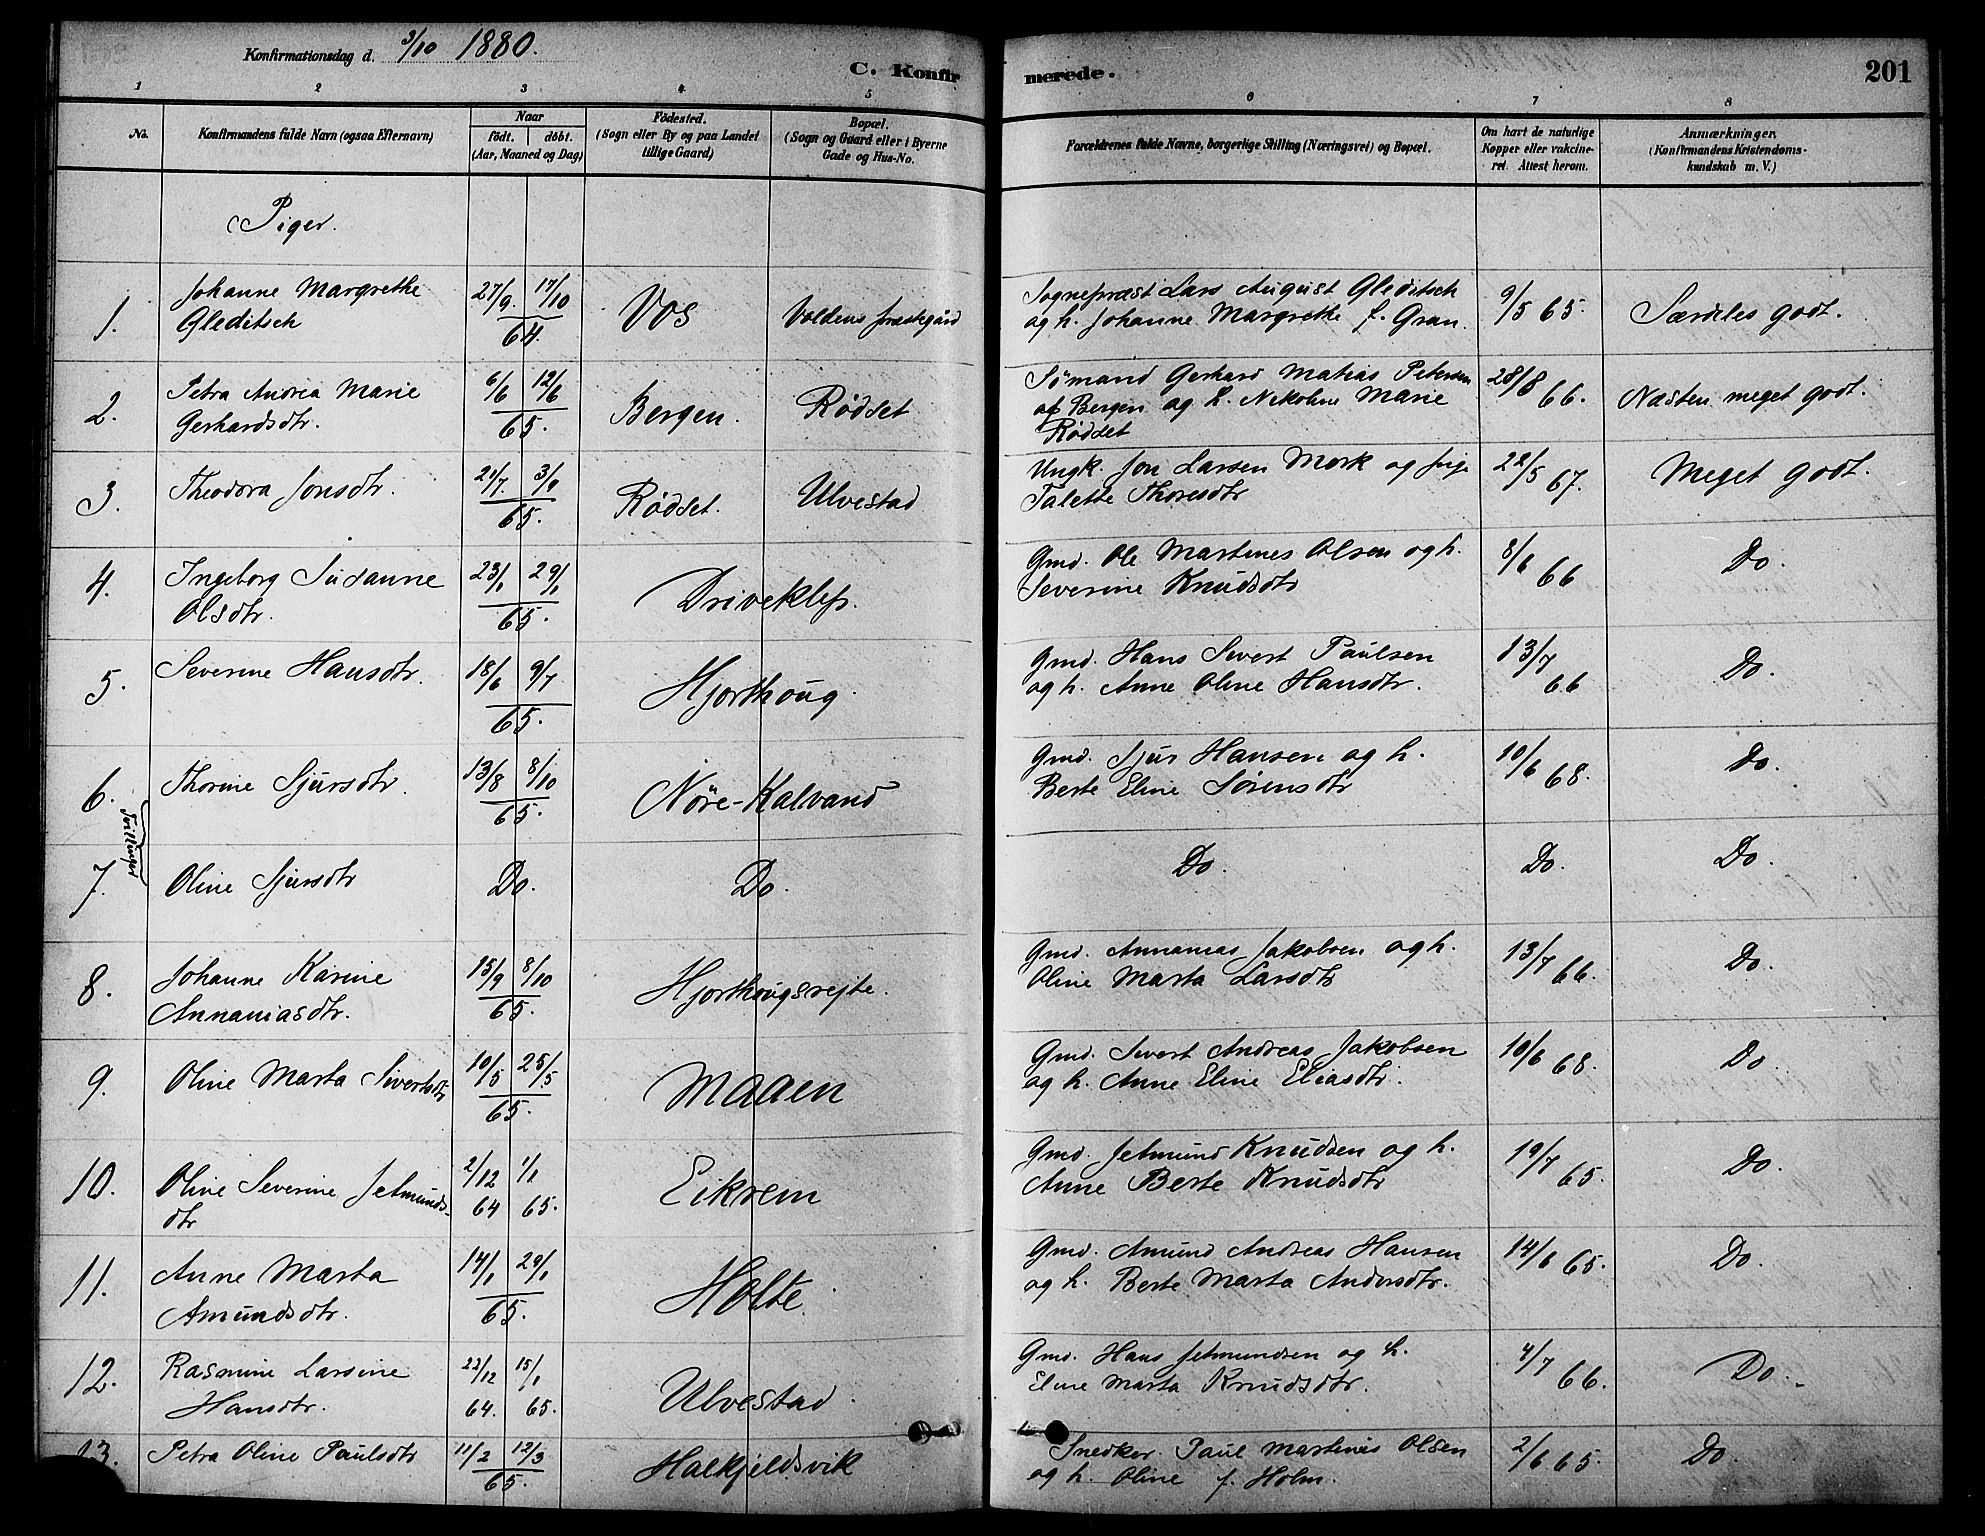 Konfirmationsdag d. 3/10 1880.
C. Konfir merede.
201
1 2 3 4 5 6 7 8
No.
Konfirmandens fulde Navn (ogsaa Efternavn)
Naar
födt. döbt.
(Aar, Maaned og Dag)
Födested.
(Sogn eller By og paa Landet
tillige Gaard)
Bopæl.
(Sogn og Gaard eller i Byerne
Gade og Hus-No.
Forældrenes fulde Navne, borgerlige Stilling (Næringsvei) og Bopæl.
Om havt de naturlige
Kopper eller vakcine-
ret. Attest herom.
Anmærkninger.
(Konfirmandens Kristendoms-
kundskab m. V.)
Piger.
1. Johanne Margrethe
Gleditsch
27/9 17/10
64.
Vos
Voldens prestegård
Sognepræst Lars August Gleditsch
og h. Johanne Margrethe f. Gran.
9/5 65.
Særdeles godt.
2. Petra Andrea Marie
Gerhardsdtr.
6/6 12/6
65.
Bergen.
Rödset
Sömand Gerhard Matias Petersen
af Bergen og h. Nikoline Marie
Rödset
28/8 66.
Næsten meget godt.
3. Theodora Jonsdtr.
21/7. 3/9
65.
Rödset.
Ulvestad
Ungk. Jon Larsen Mork og pige
Talette Thoresdtr
22/5 67.
Meget godt.
4. Ingeborg Susanne
Olsdtr.
23/1 29/1
65.
Driveklep.
Gmd. Ole Martines Olsen og h.
Severine Knudsdtr
8/6 66
Do.
5. Severine Hansdtr.
18/6 9/7
65.
Hjorthoug.
Gmd. Hans Sivert Paulsen
og h. Anne Oline Hansdtr.
13/7 66
Do.
6. Thorine Sjursdtr.
13/8 8/10
65.
Nöre-Kalvand
Gmd. Sjur Hansen og h.
Berte Eline Sörensdtr
10/6 68.
Do.
Tvillinger
7. Oline Sjursdtr
Do.
Do.
Do.
Do.
Do.
8. Johanne Karine
Annaniasdtr.
15/9 8/10
65.
Hjorthougsrejte.
Gmd. Annanias Jakobsen og h.
Oline Marta Larsdtr
13/7 66.
Do.
9. Oline Marta Sivertsdtr
10/5 25/5
65.
Maaen
Gmd. Sivert Andreas Jakobsen
og h. Anne Eline Eliasdtr.
10/6 68.
Do.
10. Oline Severine Jetmunds-
dtr
2/12 1/1
64 65.
Eikrem
Gmd. Jetmund Knudsen og h.
Anne Berte Knudsdtr
19/7 65.
Do.
11. Anne Marta
Amundsdtr.
14/1 29/1
65.
Holte.
Gmd. Amund Andreas Hansen
og h. Berte Marta Andersdtr.
14/6 65.
Do.
12. Rasmine Larsine
Hansdtr.
22/12 15/1
64. 65.
Ulvestad.
Gmd. Hans Jetmundsen og h.
Eline Marta Knudsdtr.
4/7 66.
Do.
13. Petra Oline Paulsdtr
11/2 12/3
65.
Halkjeldsvik
Snedker. Paul Martinus Olsen
og h. Oline f. Holm.
2/6 65.
Do.